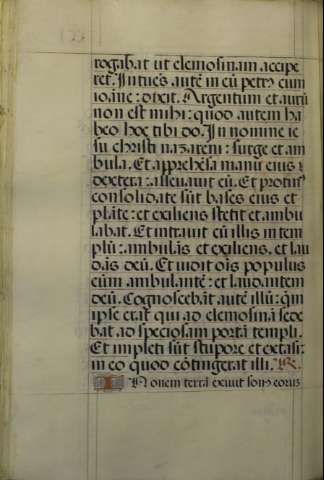 rogabat ut elemosinam accipe
ret. Intuēs autē in eū petrꝰ cum
ioāne: dixit. Argentum et aurū
non est mihi: quod autem ha
beo hoc tibi do. In nomine ie
su christi nazareni: surge et am
bula. Et apprehēsa manu eius
dextera: alleuauit eū. Et protinꝰ
consolidate sūt bases eius et
plāte: et exiliens stetit et ambu
labat. Et intrauit cū illis in tem
plū: ambulās et exiliens. et lau
dās deū. Et uidit oīs populus
eum ambulantē: et laudantem
deū. Cognoscebāt autē illū: qm̄
ipse erat qui ad elemosinā sede
bat ad speciosam portā templi.
Et impleti sūt stupore et extasi:
in eo quod cōtingerat illi. R.
In onem terrā exiuit sonꝰ eorus